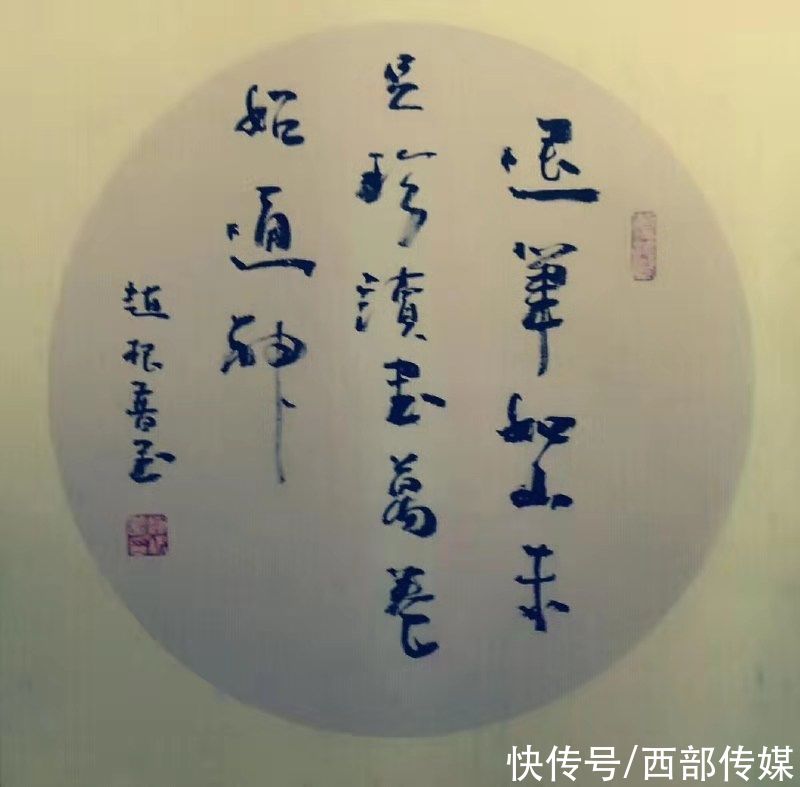 退筆如山未
足珍讀書萬卷
始通神
趙根喜書
快传号/西部传媒